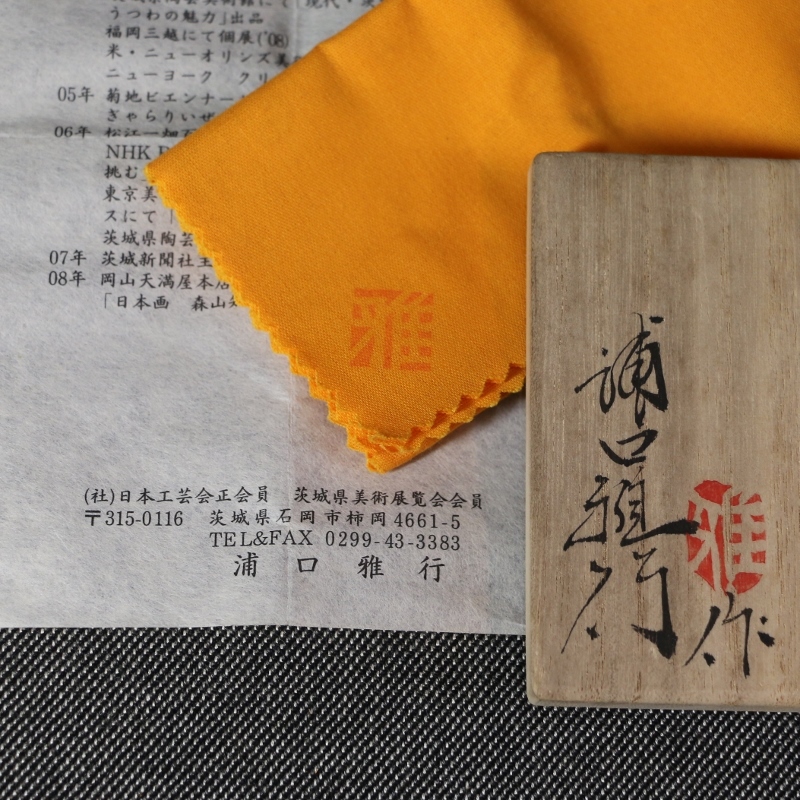 うつわの魅力」出品
福岡三越にて個展('08)
米・ニューオリンズ美
ニューヨーク クリ
05年 菊地ビエンナー
ぎゃらりいぜ
06年 松江一畑
NHK
挑む
東京美
スにて「
茨城県陶芸
07年 茨城新聞社主
08年 岡山天満屋本店
「日本画 森山知
雅
(社)日本工芸会正会員 茨城県美術展覧会会員
〒315-0116 茨城県石岡市柿岡4661-5
TEL&FAX 0299-43-3383
浦口雅行
浦口雅行
雅
作